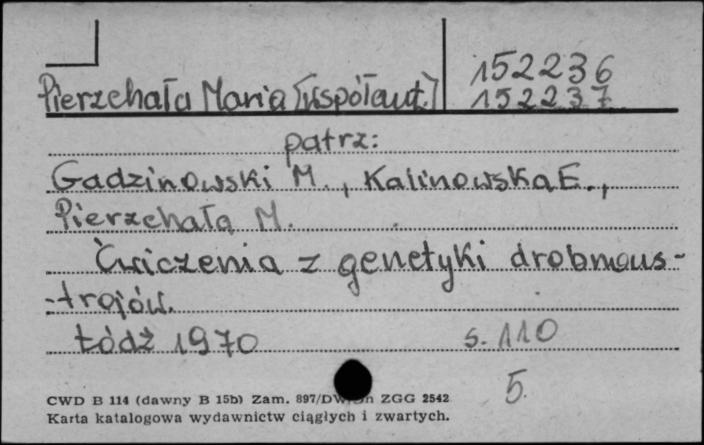 Pierzchała Maria [współaut.]
152236
152237
patrz:
Gadzinowski M., Kalinowska E.,
Pierzchała M.
Ćwiczenia z genetyki drobnous-
-trojów.
Łódź 1970 s. 110
5.
CWD B 114 (dawny B 15b) Zam. 897/DW/Dn ZGG 2542
Karta katalogowa wydawnictw ciągłych i zwartych.